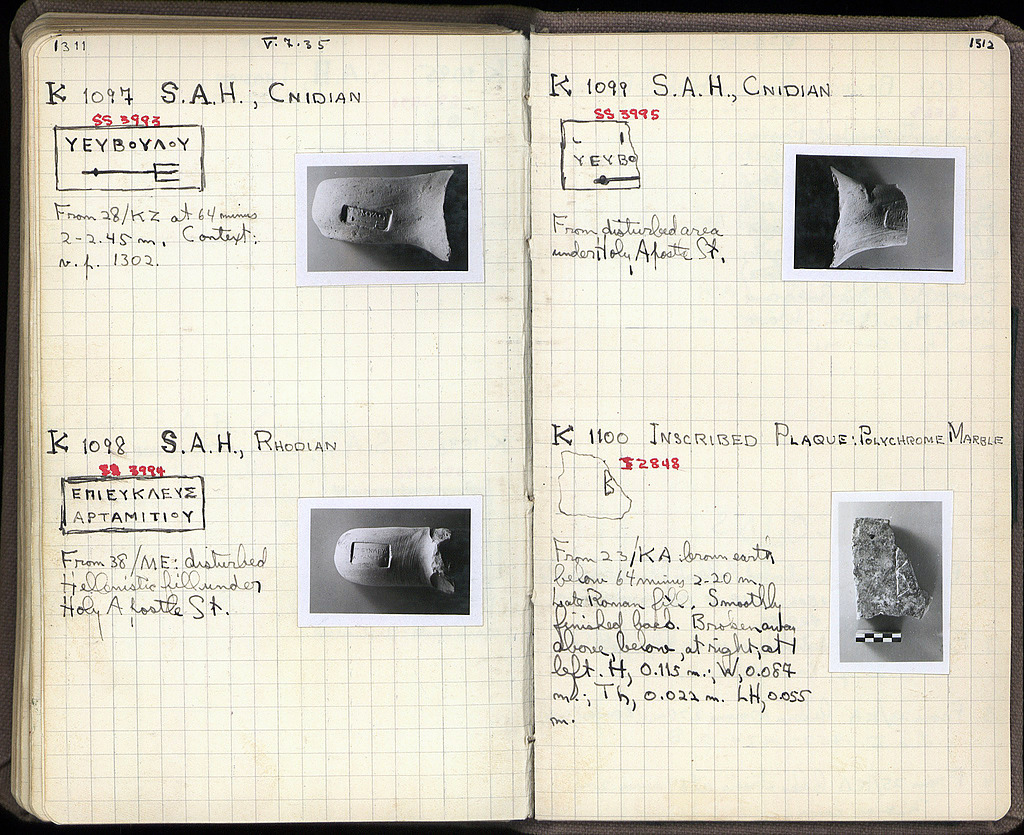 1311
V.7.35
K 1097 S.A.H., CNIDIAN
SS 3993
ΥΕΥΒΟΥΛΟΥ
From 28/KZ at 64 minus
2-2.45 m. Context:
v.p. 1302.
K 1098 S.A.H., RHODIAN
SS 3994
ΕΠΙΕΥΚΛΕΥΣ
ΑΡΤΑΜΙΤΙΟΥ
From 38/ME: disturbed
Hellenistic fill under
Holy Apostle St.
1312
K 1099 S.A.H., CNIDIAN
SS 3995
ΥΕΥΒΟ
From disturbed area
under Holy Apostle St.
K 1100 INSCRIBED PLAQUE: POLYCHROME MARBLE
I 2848
From 23/KA: brown earth
below 64 minus 2-20 m,
late Roman fill. Smoothly
finished back. Broken away
above, below, at right, at
left. H, 0.115 m.; W, 0.087
m.; Th, 0.022 m. LH, 0.055
m.